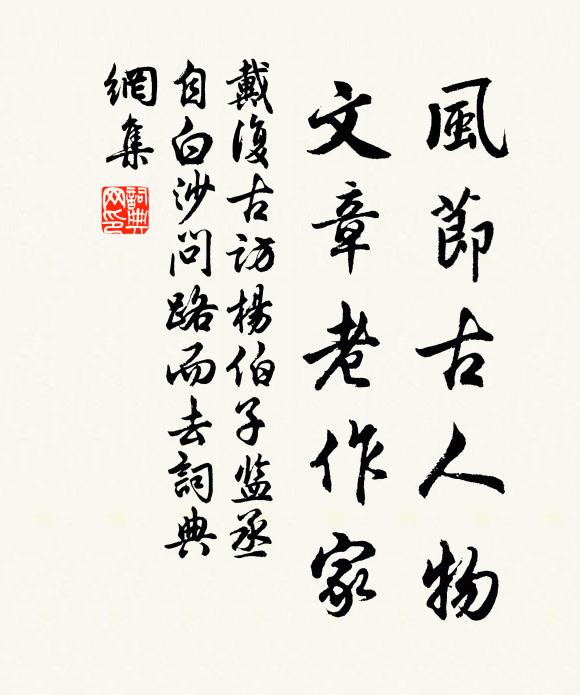 風節古人物
文章老作家
戴復古訪楊伯子监丞
自白沙問路而去詞典
網集
詞典
网印